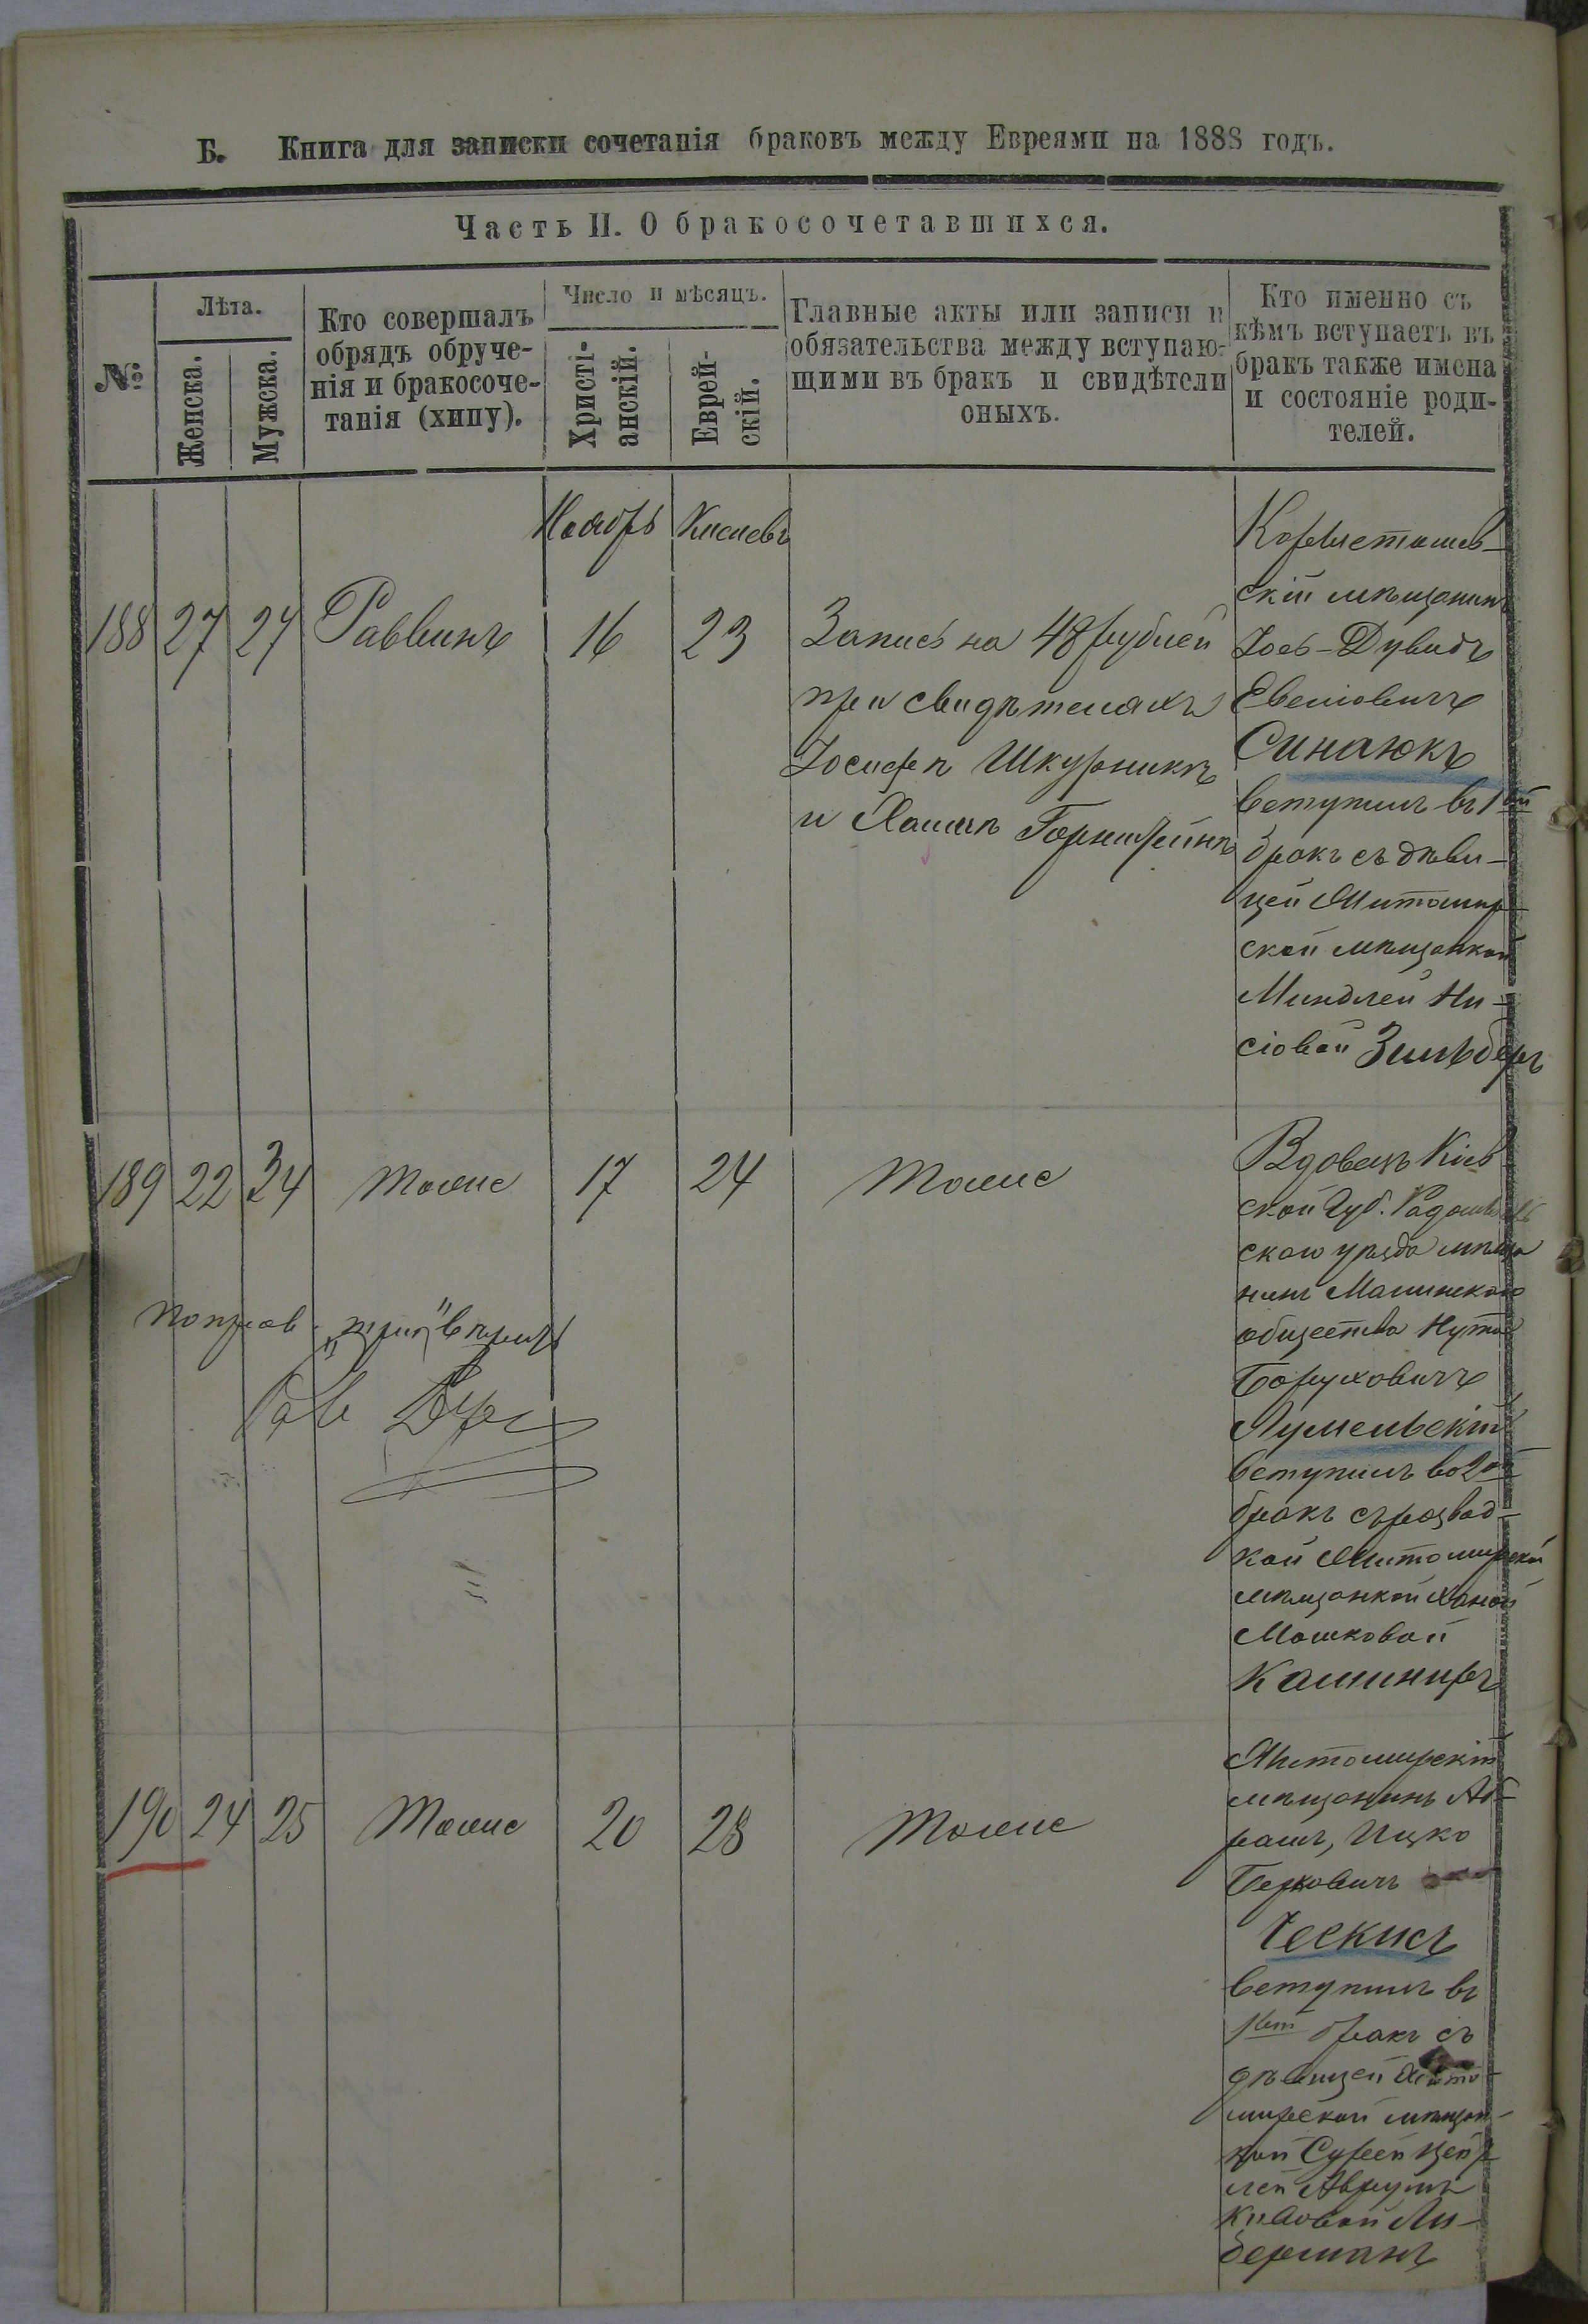 Б. Книга для записки сочетанія браковъ между Евреями на 1888 годъ.
Часть II. О бракосочетавшихся.
№
Лѣта.
Женска.
Мужска.
Кто совершалъ
обрядъ обруче-
нія и бракосоче-
танія (хипу).
Число и мѣсяцъ.
Христі-
анскій.
Еврей-
скій.
Главные акты или записи и
обязательства между вступаю-
щими въ бракъ и свидѣтели
оныхъ.
Кто именно съ
кѣмъ вступаетъ въ
бракъ также имена
и состояніе роди-
телей.
Ноябрь Кислевъ
188 27 27 Раввинъ 16 23
Запись на 48 рублей
при свидѣтеляхъ
Іосифѣ Шкурникѣ
и Хаимѣ Горнштейнѣ
Коростышев-
скій мѣщанинъ
Іось-Дувидъ
Евелiовичъ
Синаюкъ
вступилъ въ 1ый
бракъ съ дѣви-
цей Житомир-
ской мѣщанкой
Миндлей Ни-
сіовой Зильберъ
189 22 34 тоже 17 24 тоже
Вдовецъ Кіев
ской Губ. Радомысль
скаго уѣзда мѣща
нинъ Малинскаго
общества Нута
Боруховичъ
вступилъ во 2ой
бракъ съ развод-
кой Житомирской
мѣщанкой Ханой
Мошковой
190 24 25 тоже 20 28 тоже
Житомирскій
мѣщанинъ Аб-
рамъ, Ицко
Берковичъ
Ческисъ
вступилъ въ
1ый бракъ съ
дѣвицей Жито-
мирской мѣщан-
кой Сурей Цей
лей Аврумъ
Кивовой Ли-
берманъ